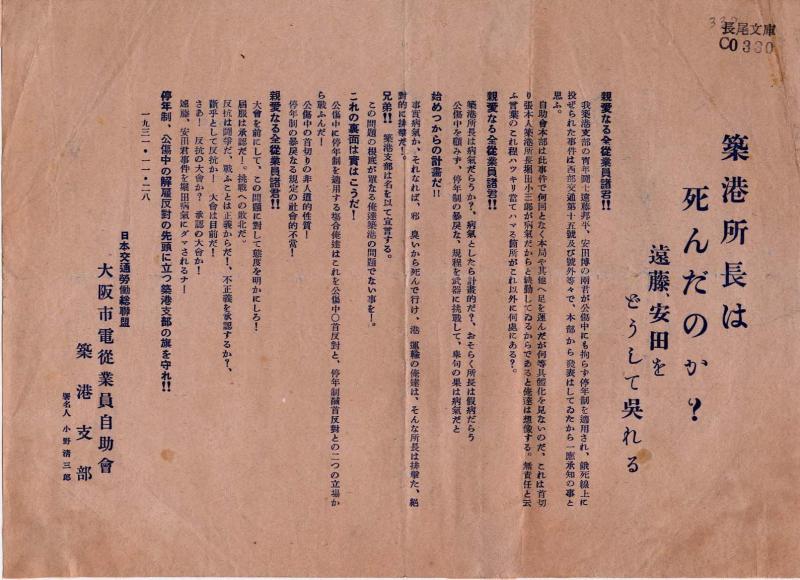 長尾文庫
CO330
築港所長は
死んだのか?
遠藤、安田を
どうして呉れる
親愛なる全從業員諸君!!
我築港支部の靑年鬪士遠藤邦平、安田博の兩君が公傷中にも拘らず停年制を適用され、餓死線上に
投ぜられた事件は西部交通第十五號及び號外等々で、本部から發表はしてゐたから一應承知の事と
思ふ。
自助會本部は此事件で何回となく本局や其他へ足を運んだが何等具體化を見ないのだ、これは首切
り張本人築港所長堀出小三郎が病氣だからと続動してゐるからであると俺達は想像する。無責任と云
ふ言葉のこれ程ハツキリ當てハマる箇所がこれ以外に何處にある?。
親愛なる全從業員諸君!!
築港所長は病氣だらうか?、病氣としたら計畫的だ?、おそらく所長は假病だらう
公傷中を顧みず、停年制の暴戾な、規程を武器に挑戰して、擧句の果は病氣だと
始めつからの計畫だ!!
事實病氣か、それなれば、邪 臭いから死んで行け、港 運輸の俺達は、そんな所長は排擊だ、絕
對的に排擊だ!。
兄弟!! 築港支部は名を以て宣言する。
この問題の根底が單なる俺達築港の問題でない事を!。
これの裏面は實はこうだ!
公傷中に停年制を適用する場合俺達はこれを公傷中〇首反對と、停年制馘首反對との二つの立場か
ら戰ふんだ!
公傷中の首切りの非人道的性質!
停年制の暴戾なる規定の社會的不當!
親愛なる全從業員諸君!!
大會を前にして、この問題に對して態度を明かにしろ!
屈服は承認だ!。挑戰への敗北だ。
反抗は鬪爭だ、戰ふことは正義からだ!、不正義を承認するか?、
斷乎として反抗か! 大會は目前だ!
さあ! 反抗の大會か? 承認の大會か!
遠藤、安田君事件を堀田病氣にダマされるナー
停年制、公傷中の解雇反對の先頭に立つ築港支部の旗を守れ!!
一九三一・一一・二八
日本交通勞働總聯盟
大阪市電從業員自助會
築港支部
署名人 小野清三郎